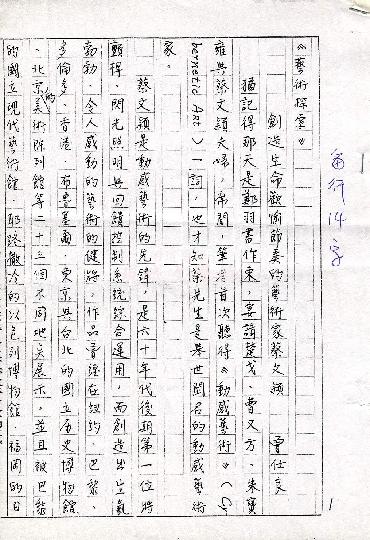 《藝術探索》
創造生命歡愉節奏的藝術家蔡文穎 曾仕
猶記得那天是鄭羽書作東,宴請楚戈、曹又方、朱寶
雍與蔡文穎夫婦,席間,筆者首次聽得《動感藝術》(Cy
bernetic Art)一詞,也才知蔡先生是舉世聞名的動感藝術
家。
蔡文穎是動感藝術的先鋒,是六十年代後期第一位將
顫桿、閃光照明與回饋控制系統綜合運用,而創造出生氣
勃勃、令人感動的藝術的健將。作品曾經在紐約、巴黎、
多倫多、香港、布魯塞爾、東京與台北的國立歷史博物館
、北京的美術陳列館等二十三個不同地點展示,並且被巴黎
的國立現代藝術館、耶路撒冷的以色列博物館、福岡的日
每行14字
1